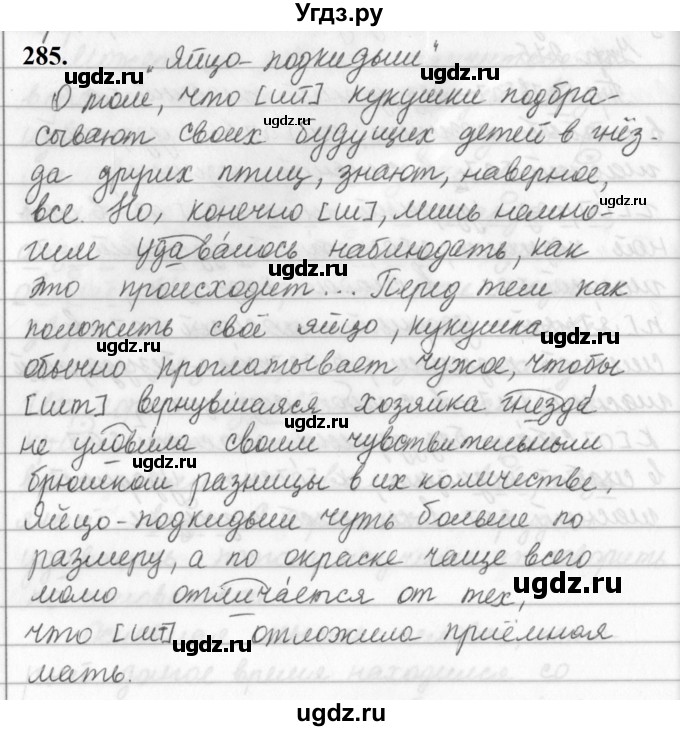 Угдз.ру
285.
„Яйцо-подкидыш"
О том, что [шт] кукушки подбра-
сывают своих будущих детей в гнёз-
да других птиц, знают, наверное,
все. Но, конечно [ш], лишь немно-
гим удавалось наблюдать, как
это происходит... Перед тем как
положить своё яйцо, кукушка
обычно проглатывает чужое, чтобы
[шт] вернувшаяся хозяйка гнезда
не уловила своим чувствительным
брюшком разницы в их количестве.
Яйцо-подкидыш чуть больше по
размеру, а по окраске чаще всего
мало отличается от тех,
что [шт] отложила приёмная
мать.
ugdz.ru
ugdz.ru
ugdz.ru
ugdz.ru
ugdz.ru
ugdz.ru
ugdz.ru
ugdz.ru
ugdz.ru
ugdz.ru
ugdz.ru
ugdz.ru
ugdz.ru